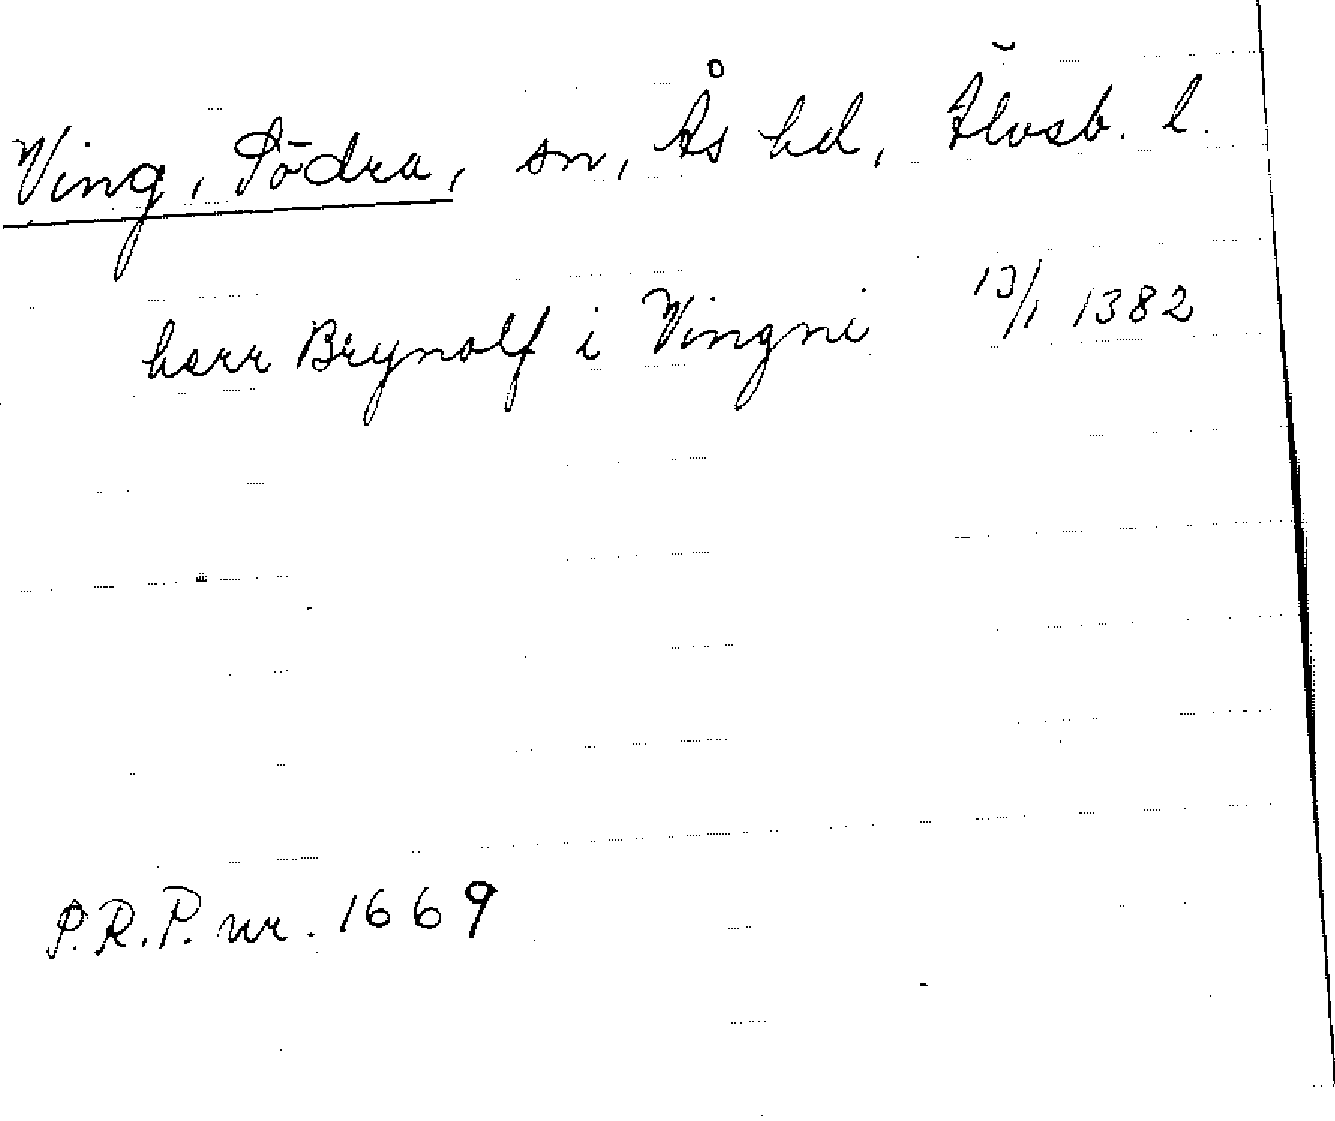 Ving, Södra, sn, Ås hd, Älvsb. l.
herr Brynolf i Vingni 13/1 1382
P.R.P. nr. 1669